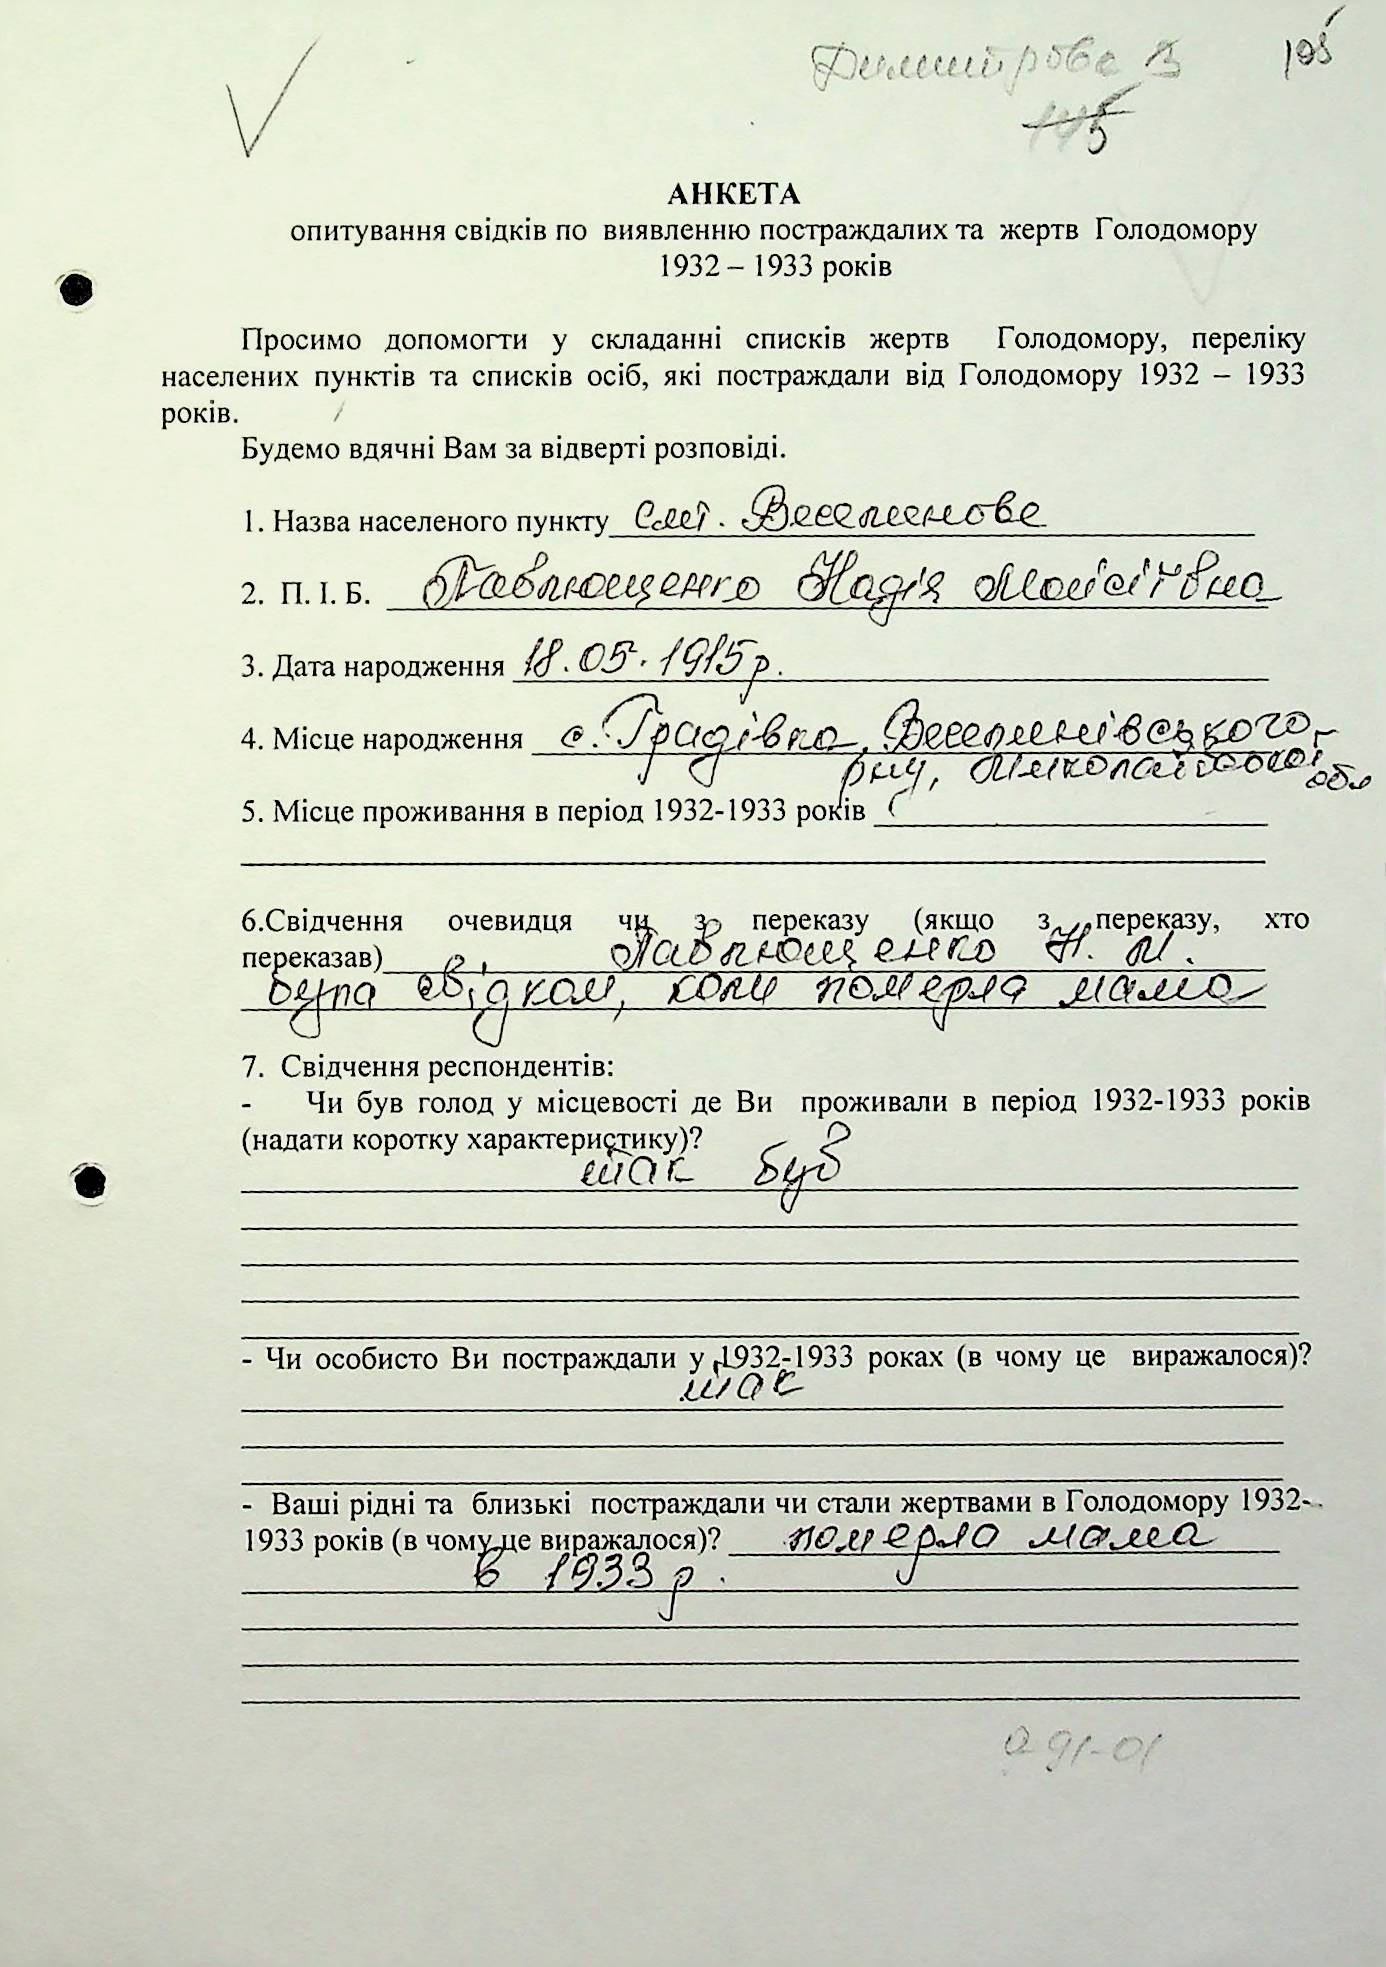 Димитрова В 195
145
АНКЕТА
опитування свідків по виявленню постраждалих та жертв Голодомору
1932 – 1933 років
Просимо допомогти у складанні списків жертв Голодомору, переліку
населених пунктів та списків осіб, які постраждали від Голодомору 1932 – 1933
років.
Будемо вдячні Вам за відверті розповіді.
1. Назва населеного пункту смт. Веселинове
2. П. І. Б. Павлющенко Надія Мойсіївна
3. Дата народження 18.05.1915р.
4. Місце народження с. Градівка, Веселинівського р-
рну, Миколаївської обл
5. Місце проживання в період 1932-1933 років
6.Свідчення очевидця чи з переказу (якщо з переказу, хто
переказав) Павлющенко Н. М.
була свідком, коли померла мама
7. Свідчення респондентів:
- Чи був голод у місцевості де Ви проживали в період 1932-1933 років
(надати коротку характеристику)?
так був
- Чи особисто Ви постраждали у 1932-1933 роках (в чому це виражалося)?
так
- Ваші рідні та близькі постраждали чи стали жертвами в Голодомору 1932-
1933 років (в чому це виражалося)? померла мама
в 1933 р.
291-01